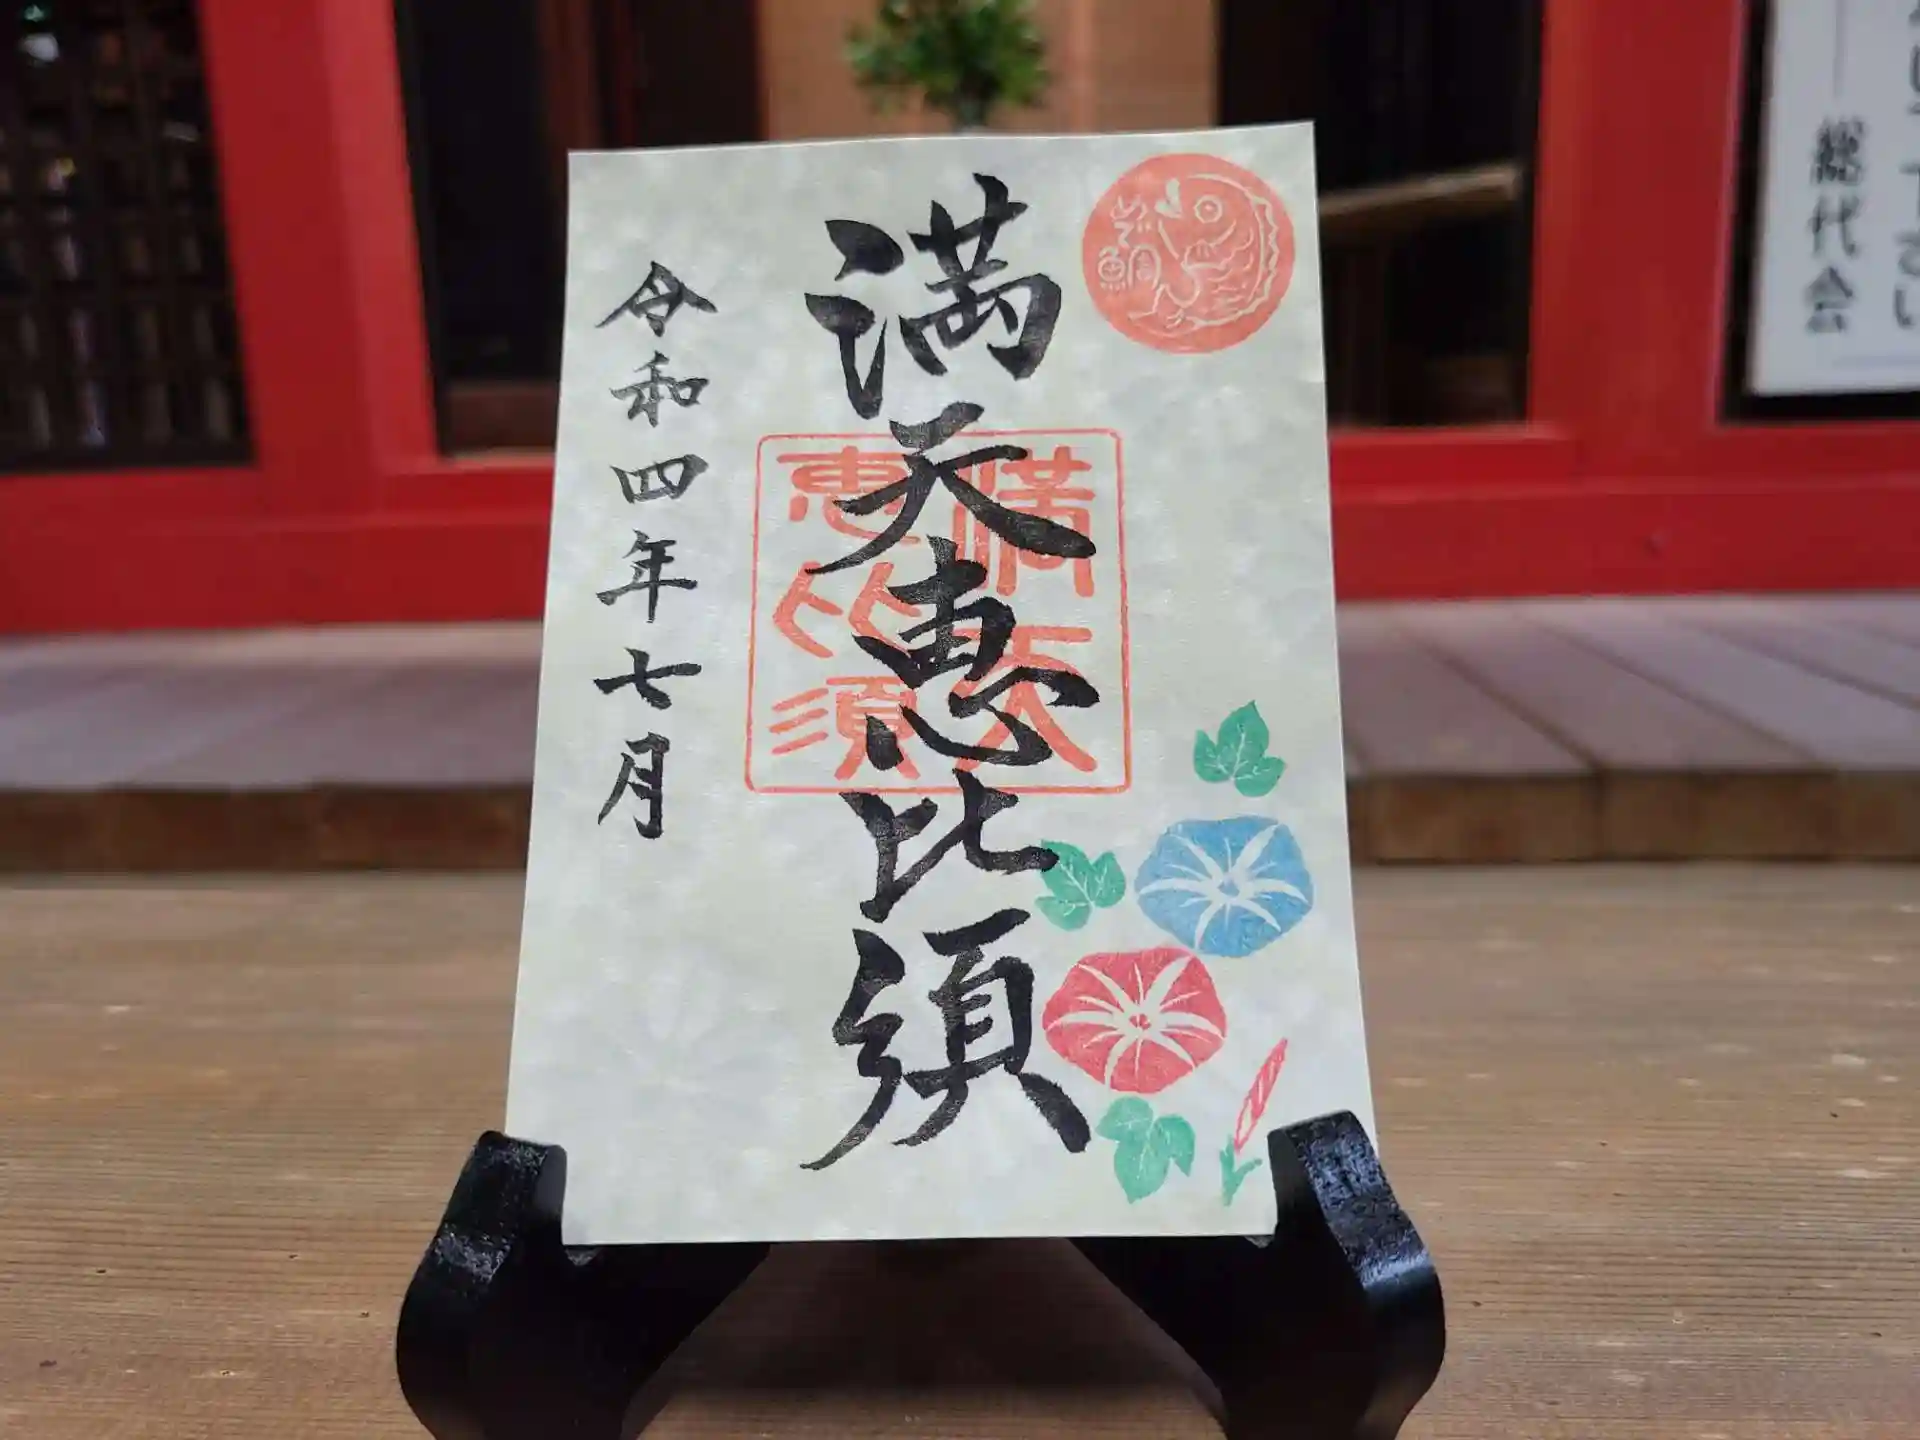 満天恵比須
令和四年七月
満天
恵比須
めで鯛
下さい
総代会